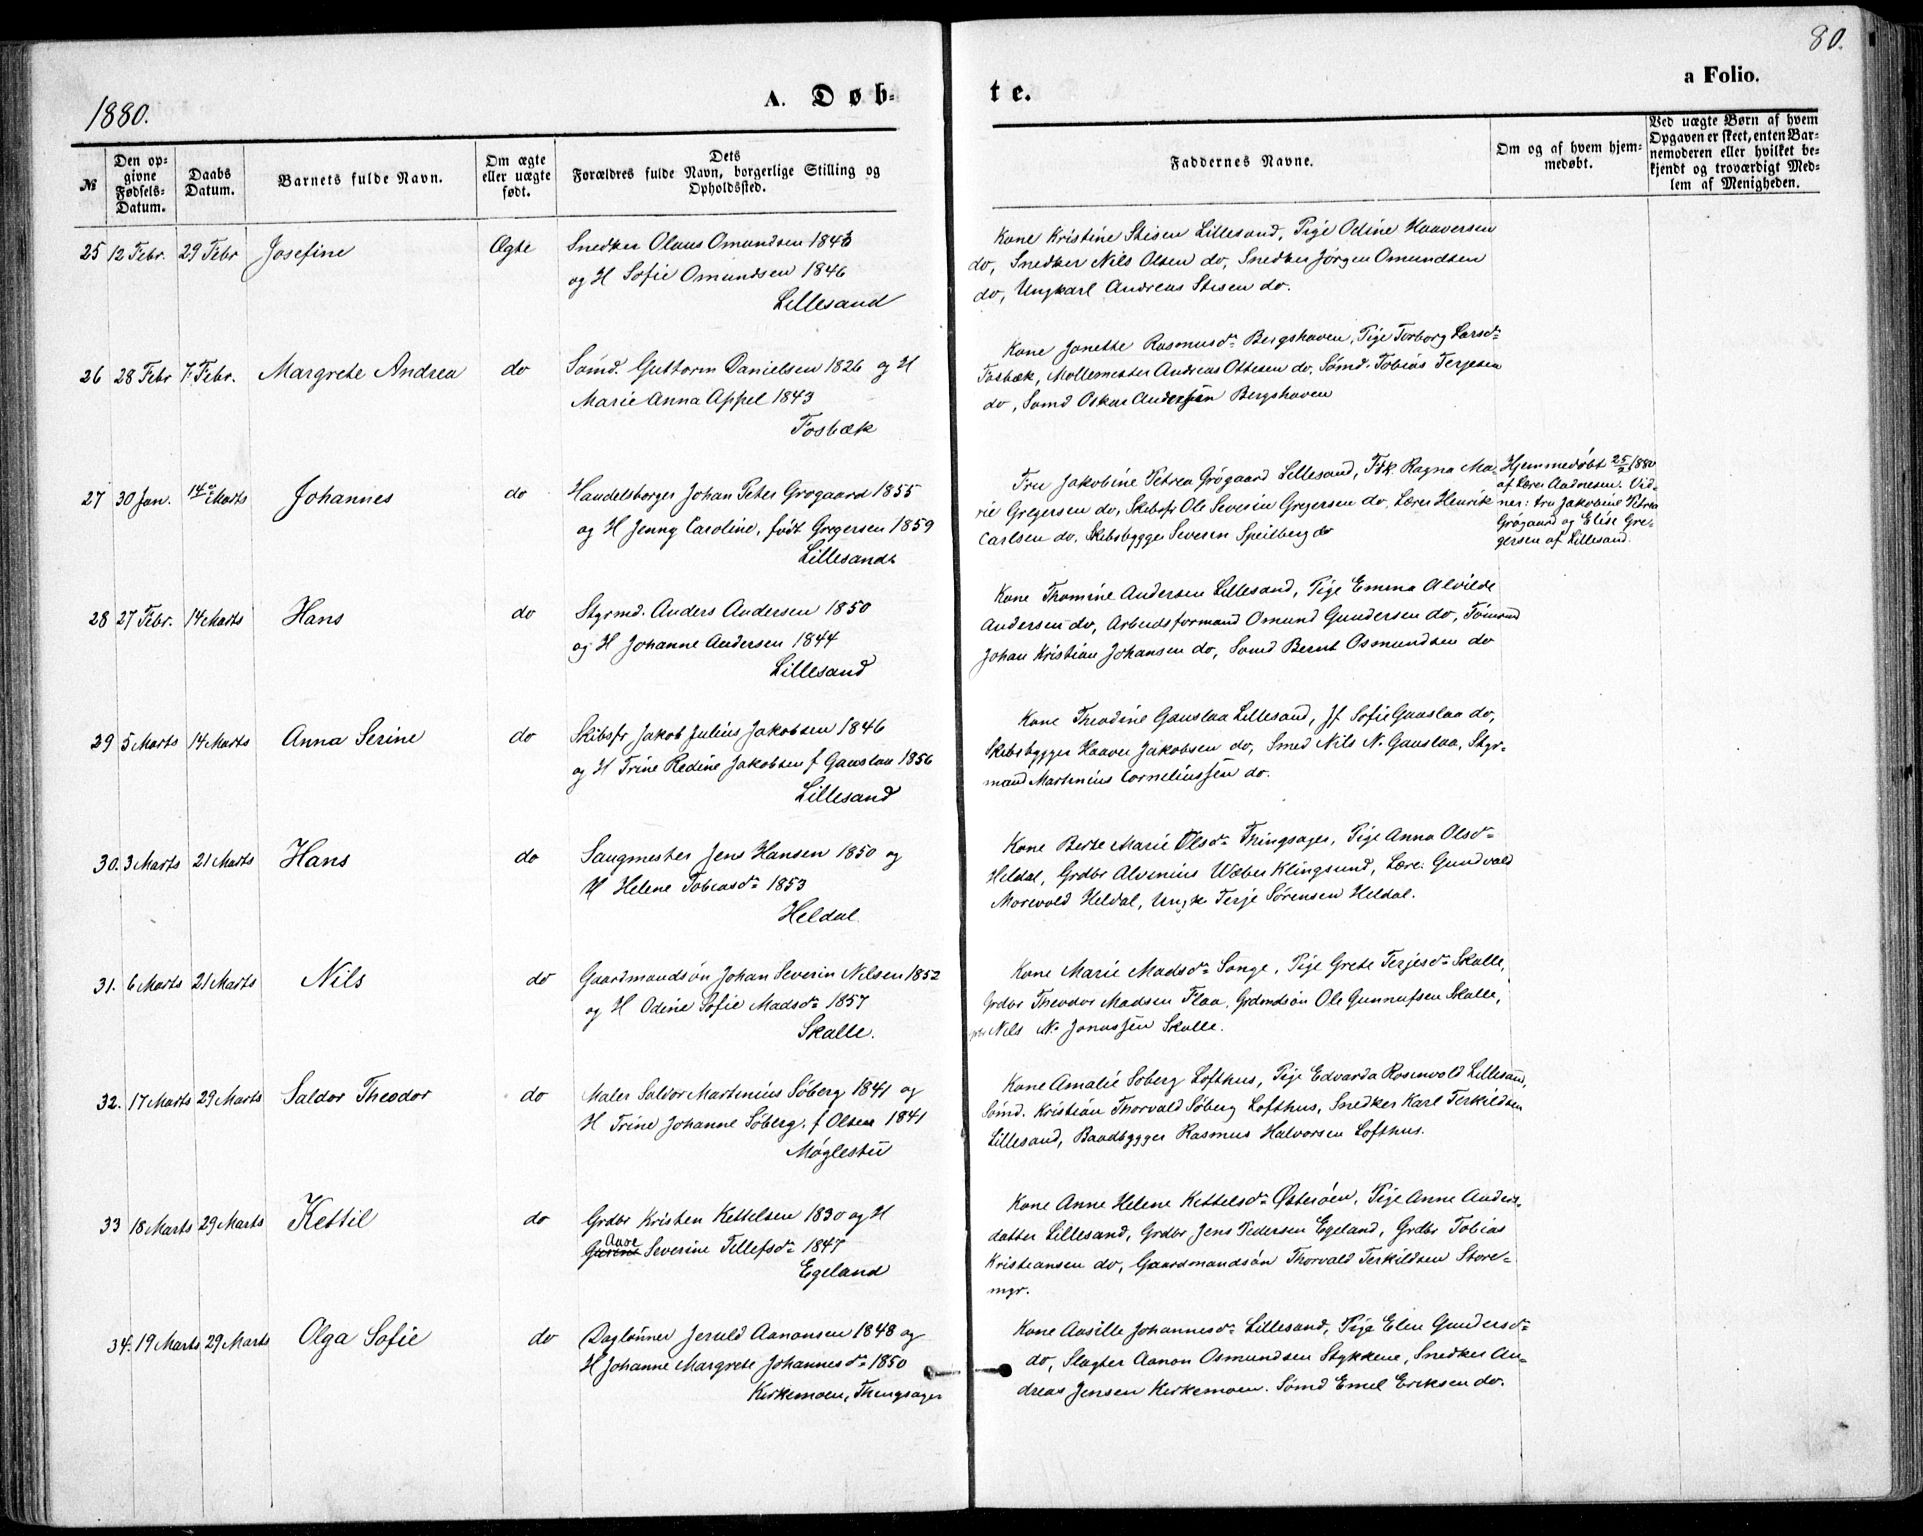 80.
1880.
A. Døb-
te.
a Folio.
№
Den op-
givne
Fødsels-
Datum.
Daabs
Datum.
Barnets fulde Navn.
Om ægte
eller uægte
født.
Dets
Forældres fulde Navn, borgerlige Stilling og
Opholdssted.
Faddernes Navne.
Om og af hvem hjem-
medøbt.
Ved uægte Børn af hvem
Opgaven er skeet, enten Bar-
nemoderen eller hvilket be-
kjendt og troværdigt Med-
lem af Menigheden.
25 12 Febr. 29 Febr Josefine Ægte Snedker Olaus Omundsen 1843
og H Sofie Omundsen 1846
Lillesand
Kone Kristine Stisen Lillesand, Pige Odine Haaversen
do, Snedker Nils Olsen do, Snedker Jørgen Omundsen
do, Ungkarl Andreas Stisen do.
26 28 Febr 7. Febr. Margrete Andrea do Sømd. Guttorm Danielsen 1826 og H
Marie Anna Appel 1843
Fosbæk
Kone Janette Rasmusdr Bergshaven, Pige Torborg Larsdr
Fosbæk, Møllemester Andreas Ottesen do, Sømd. Tobias Terjesen
do, Sømd Oskar Anderssen Bergshaven
27 30 Jan. 14de Marts Johannes do Handelsborger Johan Peter Grøgaard 1855
og H Jenny Caroline, født Gregersen 1859
Lillesand
Fru Jakobine Petrea Grøgaard Lillesand, Frk Ragna Ma-
rie Gregersen do, Skibsfr Ole Severin Gregersen do, Lærer Henrik
Carlsen do, Skibsbygger Severin Speilberg do
Hjemmedøbt 25/2 1880
af Lærer Aadnesen. Vid-
ner: Fru Jakobine Petrea
Grøgaard og Elise Gre-
gersen af Lillesand.
28 27 Febr. 14 Marts Hans do Styrmd. Anders Andersen 1850
og H Johanne Andersen 1844
Lillesand
Kone Thomine Andersen Lillesand, Pige Emma Alvilde
Andersen do, Arbeidsformand Osmund Gundersen do, Tømmd
Johan Kristian Johansen do, Sømd Bernt Osmundsen do
29 5 Marts 14 Marts Anna Serine do Skibsfr Jakob Julius Jakobsen 1846
og H Trine Redine Jakobsen f Gauslaa 1856
Lillesand
Kone Theodine Gauslaa Lillesand, Jf Sofie Gauslaa do,
Skibsbygger Haaver Jakobsen do, Smed Nils N. Gauslaa, Styr-
mand Martinius Corneliussen do.
30. 3 Marts 21 Marts Hans do Saugmester Jens Hansen 1850 og
H Helene Tobiasdr 1853
Heldal
Kone Berte Marie Olsdr Thingsager, Pige Anna Olsdr
Heldal, Grdbr Alvinius Wæber Klingsund, Lærer Gundvald
Morevold Heldal, Ungk Terje Sørensen Heldal.
31. 6 Marts 21 Marts Nils do Gaardmandsøn Johan Severin Nilsen 1852
og H Odine Sofie Madsdr 1857
Skalle.
Kone Marie Madsdr Songe, Pige Grete Terjesdr Skalle,
Grdbr Theodor Madsen Flaa, Grdmdsøn Ole Gunnufsen Skalle,
Nils N. Jonassen Skalle.
32. 17 Marts 29 Marts Saldor Theodor do Maler Saldor Martinius Søberg 1841 og
H Trine Johanne Søberg, f Olsen 1841
Møglestu
Kone Amalie Søberg Lofthus, Pige Edvarda Rosenvold Lillesand,
Sømd. Kristian Thorvald Søberg Lofthus, Snedker Karl Terkildsen
Lillesand, Baadbygger Rasmus Halvorsen Lofthus.
33 18 Marts 29 Marts Kettil do Grdbr Kristen Kettelsen 1830 og H
Aase
Severine Tellefsdr 1847
Egeland
Kone Anne Helene Kettelsdr Østerøen, Pige Anne Anders-
datter Lillesand, Grdbr Jens Pedersen Egeland, Grdbr Tobias
Kristiansen do, Gaardmandsøn Thorvald Terkildsen Store-
myr.
34. 19 Marts 29 Marts Olga Sofie do Daglønner Jeruld Aanonsen 1848 og
H Johanne Margrete Johannesdr 1850
Kirkemoen, Thingsager
Kone Aasille Johannesdr Lillesand, Pige Elen Gundersdr
do, Slagter Aanon Osmundsen Stykkene, Snedker An-
dreas Jensen Kirkemoen. Sømd Emil Eriksen do.